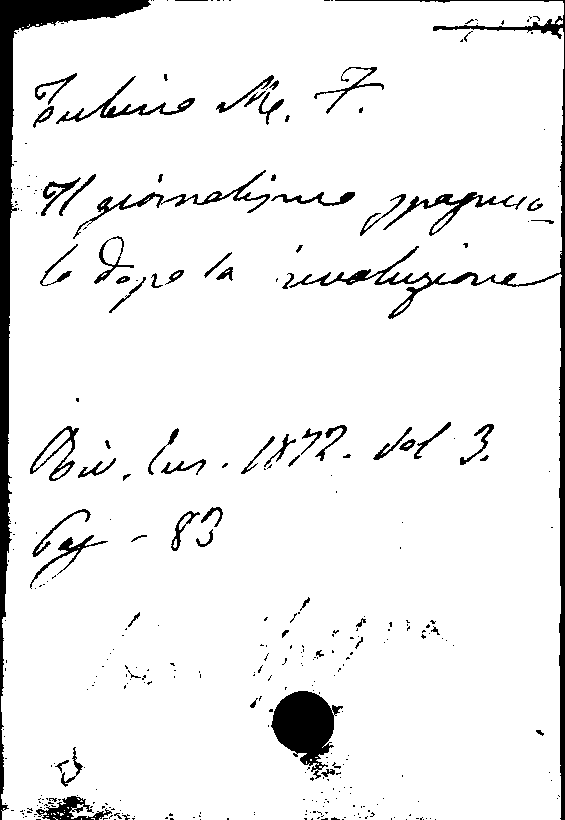 Tubino M. F.
Il giornalismo spagnuo-
lo dopo la rivoluzione
Riv. Eur. 1872. vol 3.
Pag - 83
Spagna